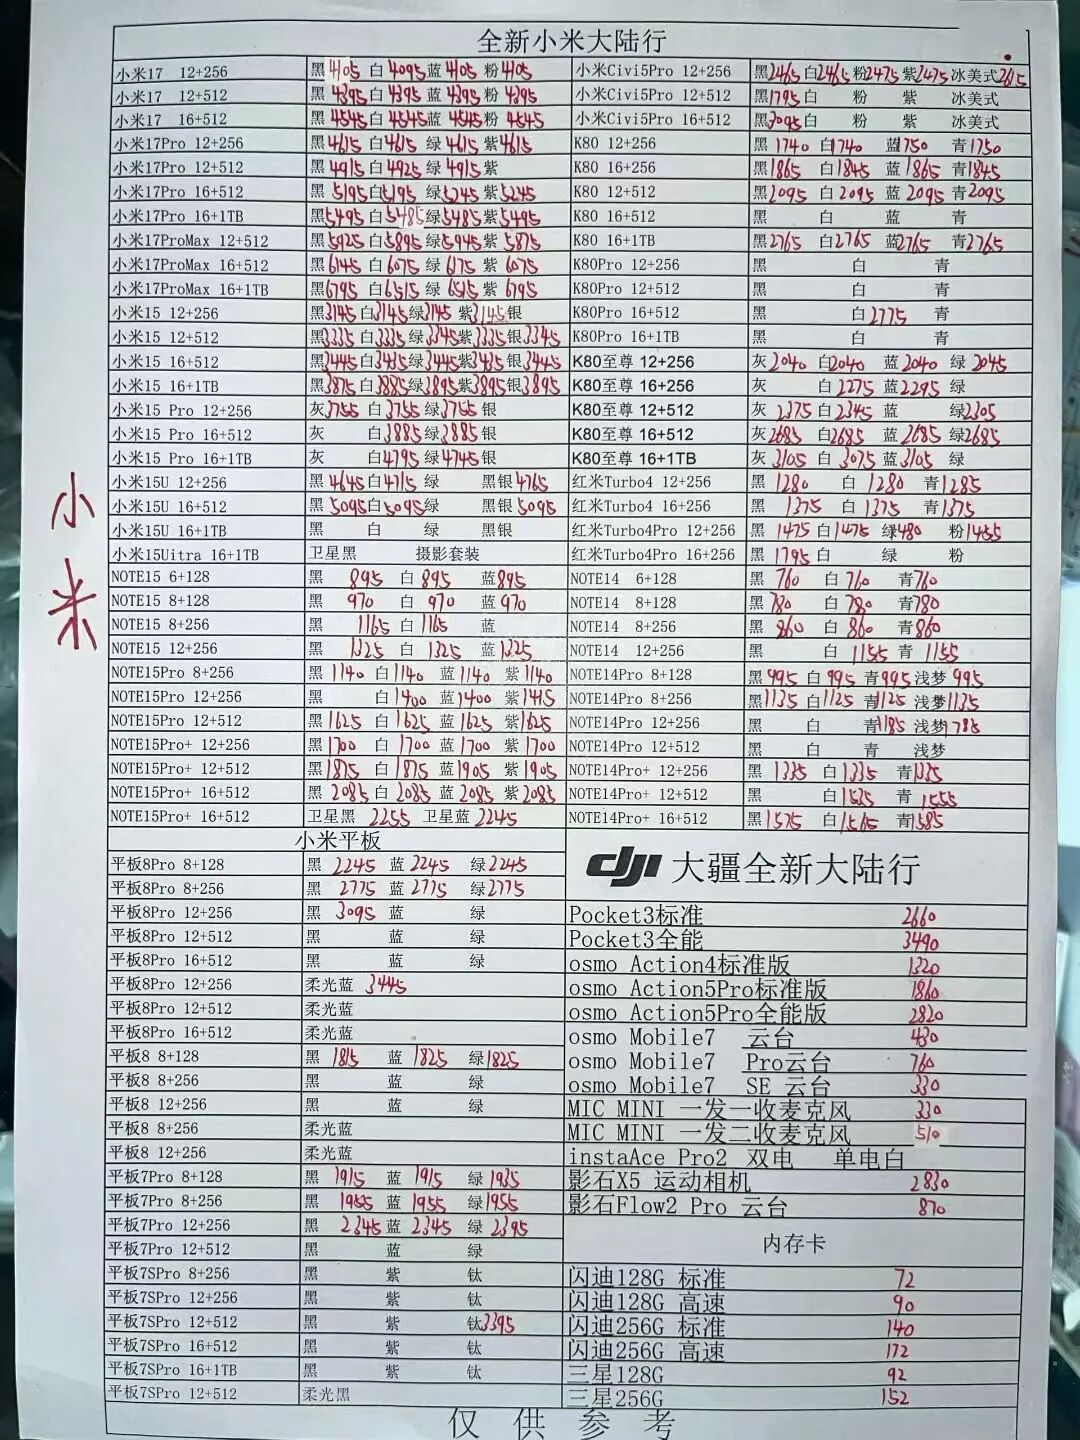 全新小米大陆行
小米17 12+256 黑4105 白4095 蓝4105 粉4105 小米Civi5Pro 12+256 黑2465 白2465 粉2475 紫2475 冰美式2615
小米17 12+512 黑4395 白4395 蓝4395 粉4395 小米Civi5Pro 12+512 黑1795 白 粉 紫 冰美式
小米17 16+512 黑4545 白4545 蓝4545 粉4545 小米Civi5Pro 16+512 黑3095 白 粉 紫 冰美式
小米17Pro 12+256 黑4615 白4615 绿4615 紫4615 K80 12+256 黑1740 白1740 蓝1750 青1750
小米17Pro 12+512 黑4915 白4925 绿4915 紫 K80 16+256 黑1865 白1845 蓝1865 青1845
小米17Pro 16+512 黑5195 白5195 绿5245 紫5245 K80 12+512 黑2095 白2095 蓝2095 青2095
小米17Pro 16+1TB 黑5495 白5485 绿5485 紫5495 K80 16+512 黑 白 蓝 青
小米17ProMax 12+512 黑5925 白5895 绿5945 紫5875 K80 16+1TB 黑2765 白2765 蓝2765 青2765
小米17ProMax 16+512 黑6145 白6075 绿6175 紫6075 K80Pro 12+256 黑 白 青
小米17ProMax 16+1TB 黑6795 白6515 绿6515 紫6795 K80Pro 12+512 黑 白 青
小米15 12+256 黑3145 白3145 绿3145 紫3145 银 K80Pro 16+512 黑 白2775 青
小米15 12+512 黑3335 白3335 绿3345 紫3335 银3345 K80Pro 16+1TB 黑 白 青
小米15 16+512 黑3445 白3435 绿3445 紫3435 银3445 K80至尊 12+256 灰2040 白2040 蓝2040 绿2045
小米15 16+1TB 黑3875 白3885 绿3895 紫3895 银3895 K80至尊 16+256 灰 白2275 蓝2295 绿
小米15 Pro 12+256 灰3755 白3755 绿3755 银 K80至尊 12+512 灰2375 白2345 蓝 绿2305
小米15 Pro 16+512 灰 白3885 绿3885 银 K80至尊 16+512 灰2685 白2685 蓝2685 绿2685
小米15 Pro 16+1TB 灰 白4795 绿4745 银 K80至尊 16+1TB 灰3105 白3075 蓝3105 绿
小米15U 12+256 黑4645 白4715 绿 黑银4765 红米Turbo4 12+256 黑1280 白1280 青1285
小米15U 16+512 黑5095 白5095 绿 黑银5095 红米Turbo4 16+256 黑1375 白1375 青1375
小米15U 16+1TB 黑 白 绿 黑银 红米Turbo4Pro 12+256 黑1475 白1475 绿480 粉1455
小米15Uitra 16+1TB 卫星黑 摄影套装 红米Turbo4Pro 16+256 黑1795 白 绿 粉
NOTE15 6+128 黑895 白895 蓝895 NOTE14 6+128 黑760 白760 青760
NOTE15 8+128 黑970 白970 蓝970 NOTE14 8+128 黑780 白780 青780
NOTE15 8+256 黑1165 白1165 蓝 NOTE14 8+256 黑860 白860 青860
NOTE15 12+256 黑1325 白1325 蓝1325 NOTE14 12+256 黑 白1155 青1155
NOTE15Pro 8+256 黑1140 白1140 蓝1140 紫1140 NOTE14Pro 8+128 黑995 白995 青995 浅梦995
NOTE15Pro 12+256 黑 白1400 蓝1400 紫1415 NOTE14Pro 8+256 黑1135 白1125 青1125 浅梦1135
NOTE15Pro 12+512 黑1625 白1625 蓝1625 紫1625 NOTE14Pro 12+256 黑 白 青1185 浅梦785
NOTE15Pro+ 12+256 黑1700 白1700 蓝1700 紫1700 NOTE14Pro 12+512 黑 白 青 浅梦
NOTE15Pro+ 12+512 黑1875 白1875 蓝1905 紫1905 NOTE14Pro+ 12+256 黑1335 白1335 青1335
NOTE15Pro+ 16+512 黑2085 白2085 蓝2085 紫2085 NOTE14Pro+ 12+512 黑 白1535 青1555
NOTE15Pro+ 16+512 卫星黑2255 卫星蓝2245 NOTE14Pro+ 16+512 黑1575 白1565 青1585
小米
小米平板
平板8Pro 8+128 黑2245 蓝2245 绿2245
平板8Pro 8+256 黑2775 蓝2775 绿2775
平板8Pro 12+256 黑3095 蓝 绿
平板8Pro 12+512 黑 蓝 绿
平板8Pro 16+512 黑 蓝 绿
平板8Pro 12+256 柔光蓝3445
平板8Pro 12+512 柔光蓝
平板8Pro 16+512 柔光蓝
平板8 8+128 黑1815 蓝1825 绿1825
平板8 8+256 黑 蓝 绿
平板8 12+256 黑 蓝 绿
平板8 8+256 柔光蓝
平板8 12+256 柔光蓝
平板7Pro 8+128 黑1915 蓝1915 绿1935
平板7Pro 8+256 黑1955 蓝1955 绿1955
平板7Pro 12+256 黑2345 蓝2345 绿2395
平板7Pro 12+512 黑 蓝 绿
平板7SPro 8+256 黑 紫 钛
平板7SPro 12+256 黑 紫 钛
平板7SPro 12+512 黑 紫 钛3395
平板7SPro 16+512 黑 紫 钛
平板7SPro 16+1TB 黑 紫 钛
平板7SPro 12+512 柔光黑
dji 大疆全新大陆行
Pocket3标准 2660
Pocket3全能 3490
osmo Action4标准版 1320
osmo Action5Pro标准版 1860
osmo Action5Pro全能版 2820
osmo Mobile7 云台 430
osmo Mobile7 Pro云台 760
osmo Mobile7 SE 云台 330
MIC MINI 一发一收麦克风 330
MIC MINI 一发二收麦克风 510
instaAce Pro2 双电 单电白
影石X5 运动相机 2830
影石Flow2 Pro 云台 870
内存卡
闪迪128G 标准 72
闪迪128G 高速 90
闪迪256G 标准 140
闪迪256G 高速 172
三星128G 92
三星256G 152
仅供参考